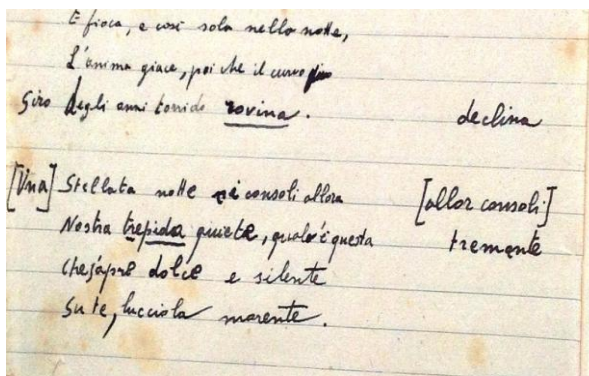 E fioca, e così sola nella notte,
L'anima giace, poi che il curvo
Giro degli anni torrido rovina. declina
[Una] Stellata notte ci consoli allora [allor consoli]
Nostra trepida quiete, qual'è questa tremante
Che s'apre dolce e silente
Su te, lucciola morente.